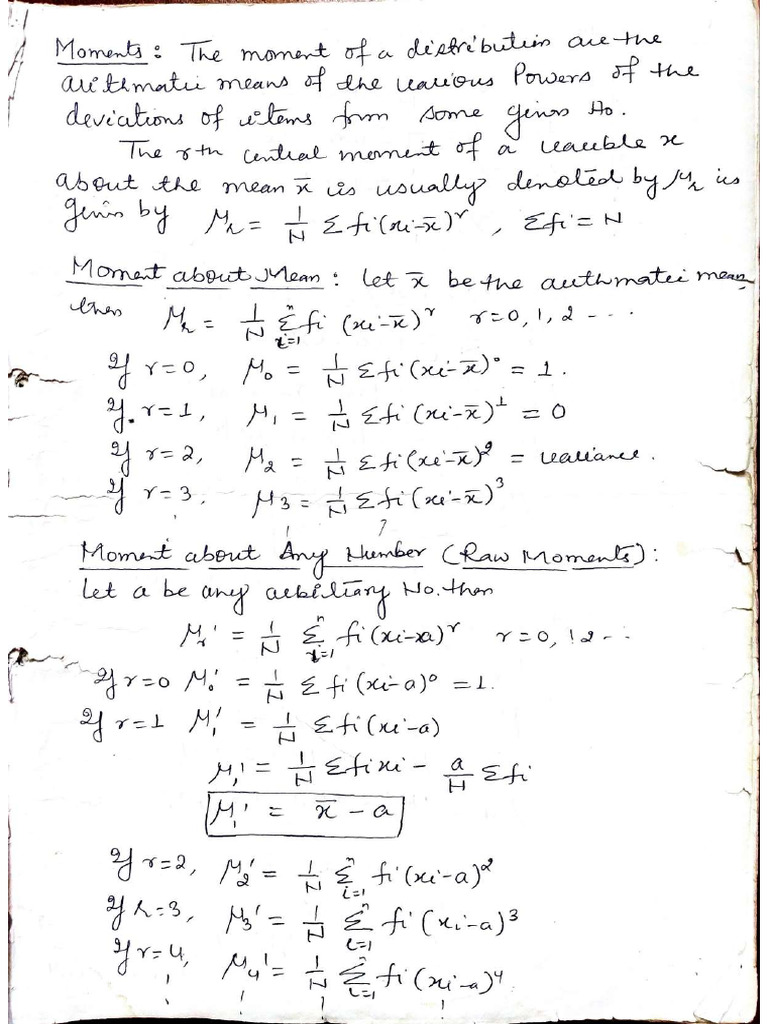 Moments : The moment of a distribution are the
arithmatic means of the various Powers of the
deviations of items from some given No.
The rth central moment of a variable x
about the mean x̄ is usually denoted by μr is
given by μr = 1/N Σ fi(xi-x̄)^r , Σfi = N
Moment about Mean : let x̄ be the arithmatic mean
then μr = 1/N Σ_{i=1}^{n} fi (xi-x̄)^r r=0, 1, 2 - - -
If r=0, μ0 = 1/N Σfi(xi-x̄)^0 = 1.
If r=1, μ1 = 1/N Σfi(xi-x̄)^1 = 0
If r=2, μ2 = 1/N Σfi(xi-x̄)^2 = variance.
If r=3, μ3 = 1/N Σfi(xi-x̄)^3
Moment about Any Number (Raw Moments):
Let a be any arbitrary No. then
μr' = 1/N Σ_{i=1}^{n} fi(xi-a)^r r=0, 1 2 - - -
If r=0 μ0' = 1/N Σ fi(xi-a)^0 = 1.
If r=1 μ1' = 1/N Σfi(xi-a)
μ1' = 1/N Σfixi - a/N Σfi
μ1' = x̄ - a
If r=2, μ2' = 1/N Σ_{i=1}^{n} fi(xi-a)^2
If r=3, μ3' = 1/N Σ_{i=1}^{n} fi(xi-a)^3
If r=4, μ4' = 1/N Σ_{i=1}^{n} fi(xi-a)^4